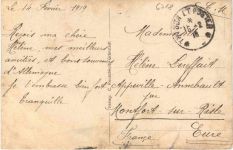 Le 14 Février 1919
Reçois ma chère
Hélène, mes meilleures
amitiés, et bons souvenirs
d'Allemagne
Je t'embrasse bien fort
Tranquille
Mademoiselle
Hélène
Appeville - Annebault
par
Montfort sur Risle
Eure
France